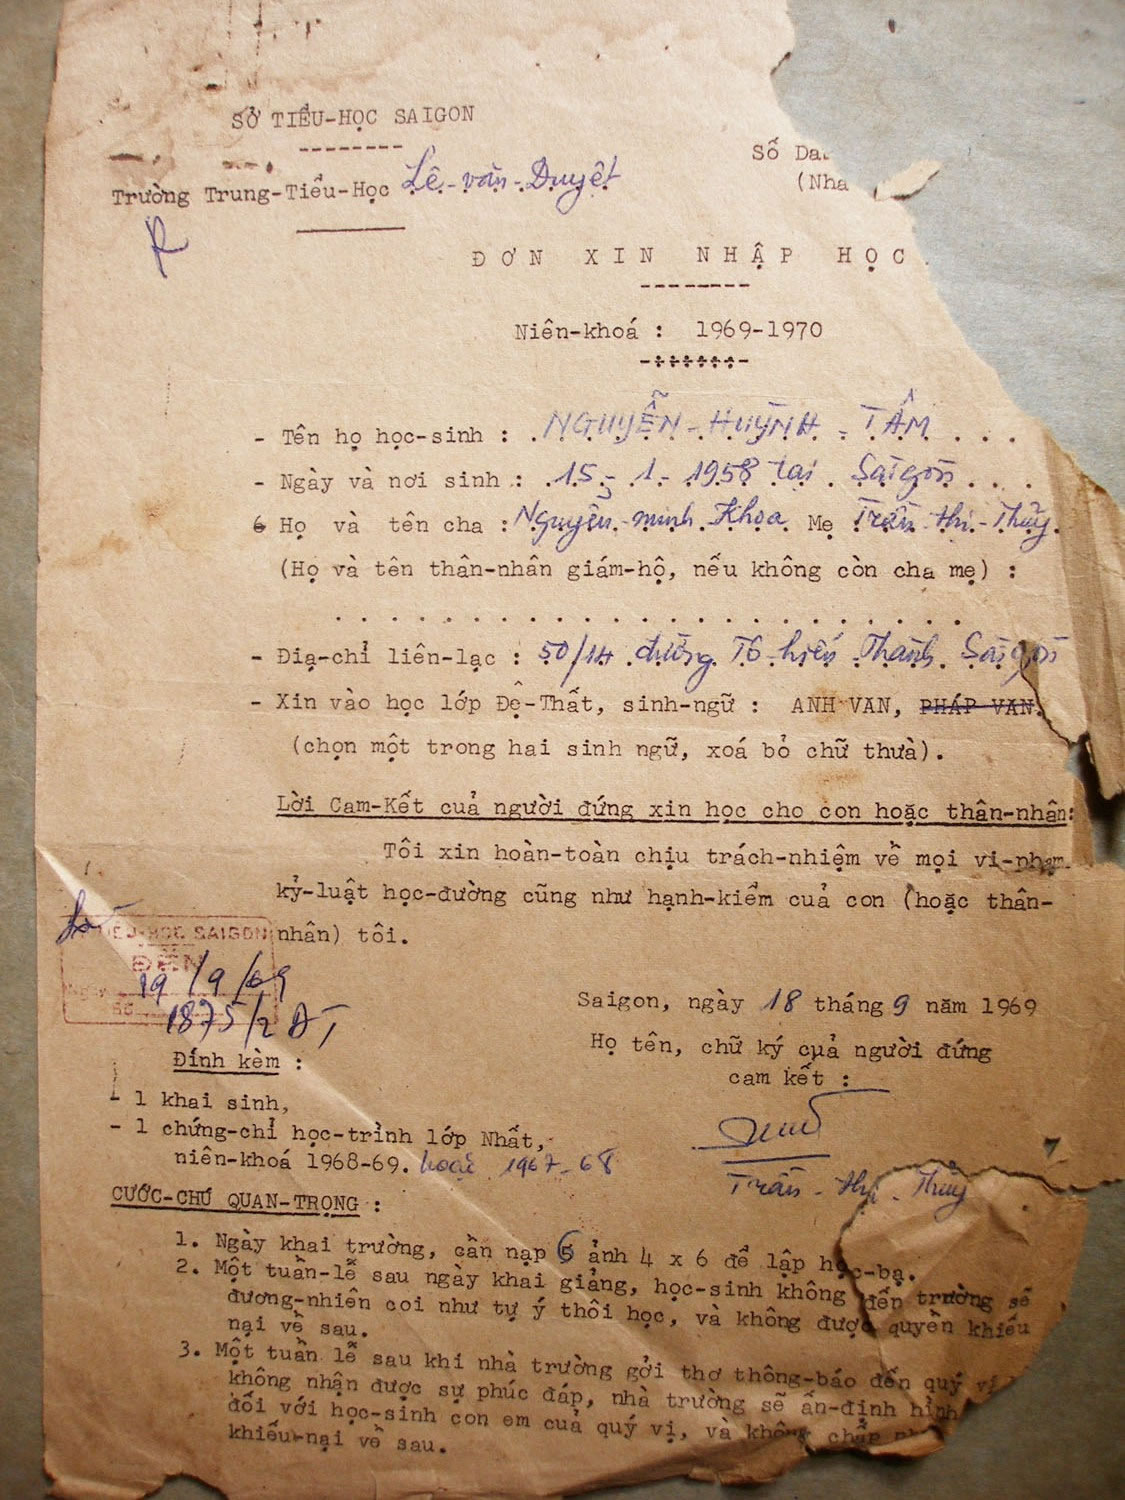 SỞ TIỂU-HỌC SAIGON
Số Da
Trường Trung-Tiểu-Học Lê-văn-Duyệt
(Nha
ĐƠN XIN NHẬP HỌC
Niên-khoá : 1969-1970
- Tên họ học-sinh : NGUYỄN-HUỲNH-TÂM
- Ngày và nơi sinh : 15-1-1958 tại Saigon
6 Họ và tên cha : Nguyễn-minh-Khoa Mẹ Trần-thị-Thủy
(Họ và tên thân-nhân giám-hộ, nếu không còn cha mẹ) :
- Điạ-chỉ liên-lạc : 50/1H đường Tô-hiến Thành Saigon
- Xin vào học lớp Đệ-Thất, sinh-ngữ : ANH VAN, PHÁP VAN.
(chọn một trong hai sinh ngữ, xoá bỏ chữ thưà).
Lời Cam-Kết cuả người đứng xin học cho con hoặc thân-nhân:
Tôi xin hoàn-toàn chịu trách-nhiệm về mọi vi-phạm
kỷ-luật học-đường cũng như hạnh-kiểm cuả con (hoặc thân-
nhân) tôi.
TIỂU-HỌC SAIGON
ĐẾN
19/9/69
1875/2
Saigon, ngày 18 tháng 9 năm 1969
Họ tên, chữ ký cuả người đứng
cam kết :
Đính kèm :
- 1 khai sinh,
- 1 chứng-chỉ học-trình lớp Nhất,
niên-khoá 1968-69. hoặc 1967-68
Trần-thị-Thủy
CƯỚC-CHÚ QUAN-TRỌNG :
1. Ngày khai trường, cần nạp 6 ảnh 4 x 6 để lập học-bạ.
2. Một tuần-lễ sau ngày khai giảng, học-sinh không đến trường sẽ
đương-nhiên coi như tự ý thôi học, và không được quyền khiếu
nại về sau.
3. Một tuần lễ sau khi nhà trường gởi thơ thông-báo đến quý vị
không nhận được sự phúc đáp, nhà trường sẽ ấn-định hình
đối với học-sinh con em cuả quý vị, và không chấp
khiếu-nại về sau.